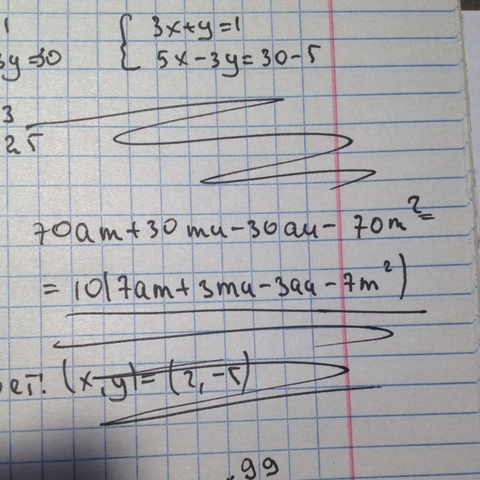 1
3y=30
{ 3x+y=1
5x-3y=30-5
3
25
70am+30mu-30au-70m²=
=10(7am+3mu-3au-7m²)
ет: (x,y)=(2,-5)
.99